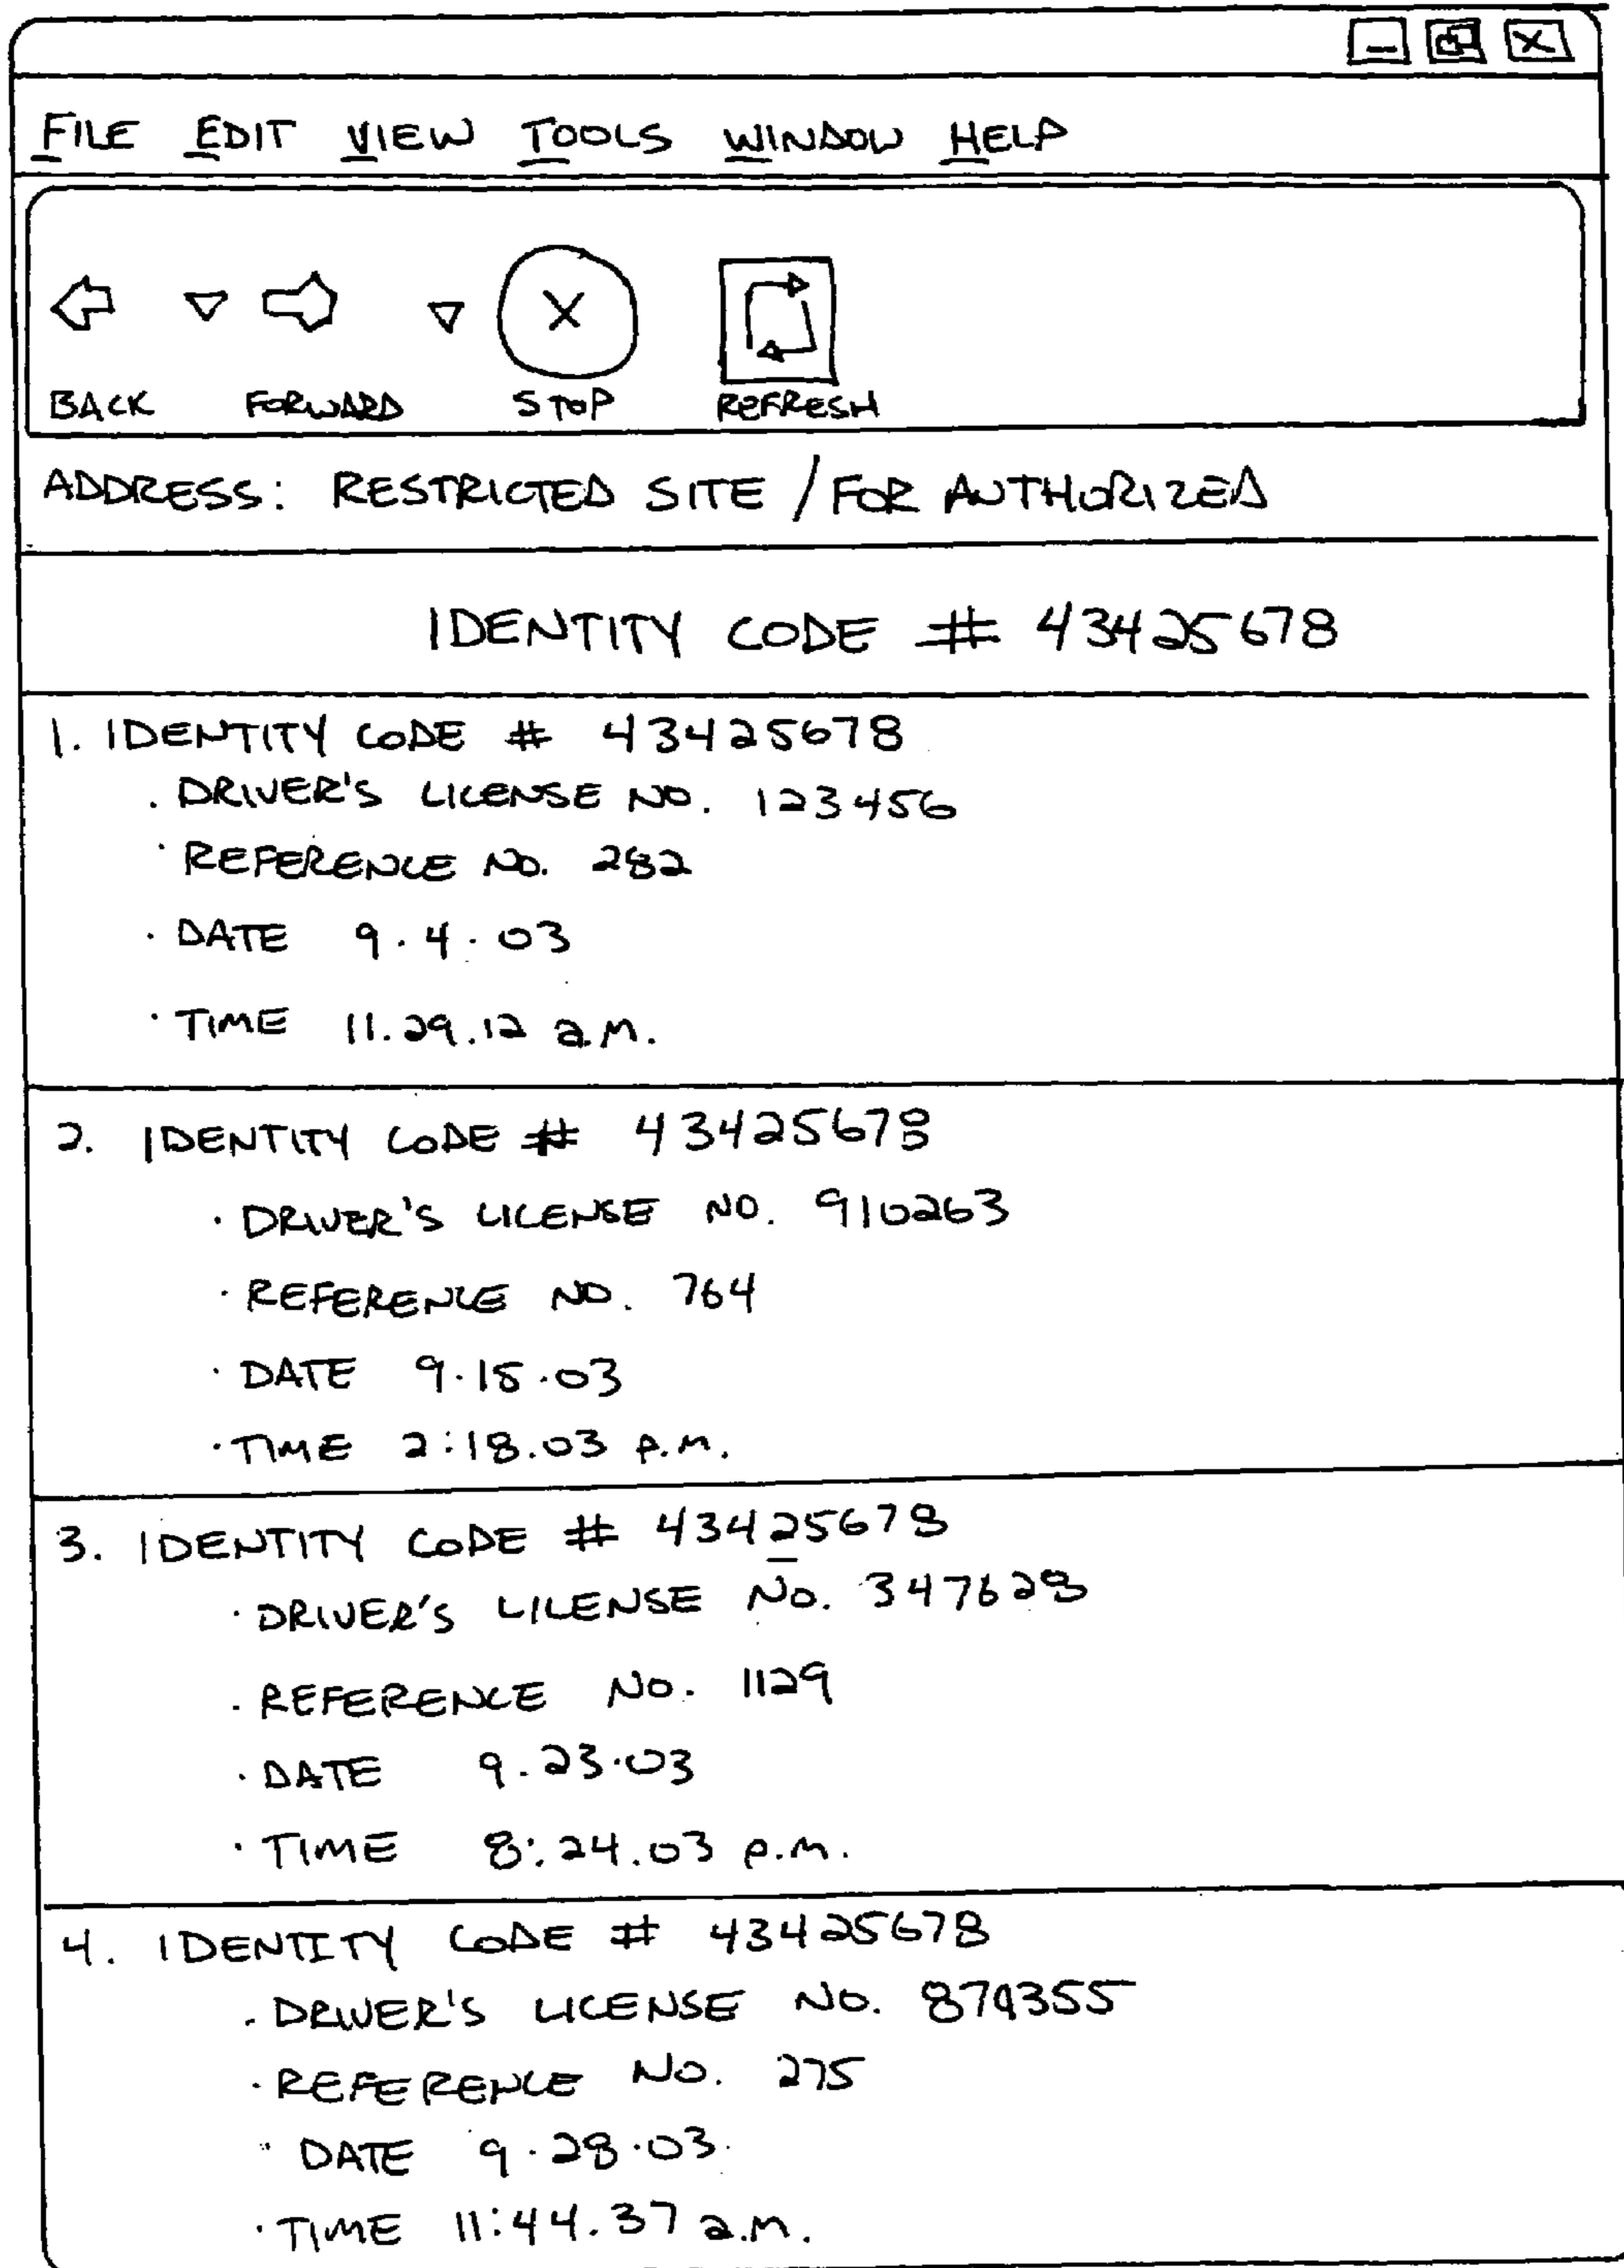 FILE EDIT VIEW TOOLS WINDOW HELP
X
BACK FORWARD STOP REFRESH
ADDRESS: RESTRICTED SITE / FOR AUTHORIZED
IDENTITY CODE # 43425678
1. IDENTITY CODE # 43425678
. DRIVER'S LICENSE NO. 123456
· REFERENCE NO. 282
· DATE 9.4.03
· TIME 11.29.12 a.m.
2. IDENTITY CODE # 43425678
· DRIVER'S LICENSE NO. 910263
· REFERENCE NO. 764
· DATE 9.15.03
· TIME 2:18.03 p.m.
3. IDENTITY CODE # 43425678
· DRIVER'S LICENSE NO. 347628
· REFERENCE NO. 1129
· DATE 9.23.03
· TIME 8:24.03 p.m.
4. IDENTITY CODE # 43425678
· DRIVER'S LICENSE NO. 879355
· REFERENCE NO. 275
· DATE 9.28.03
· TIME 11:44.37 a.m.